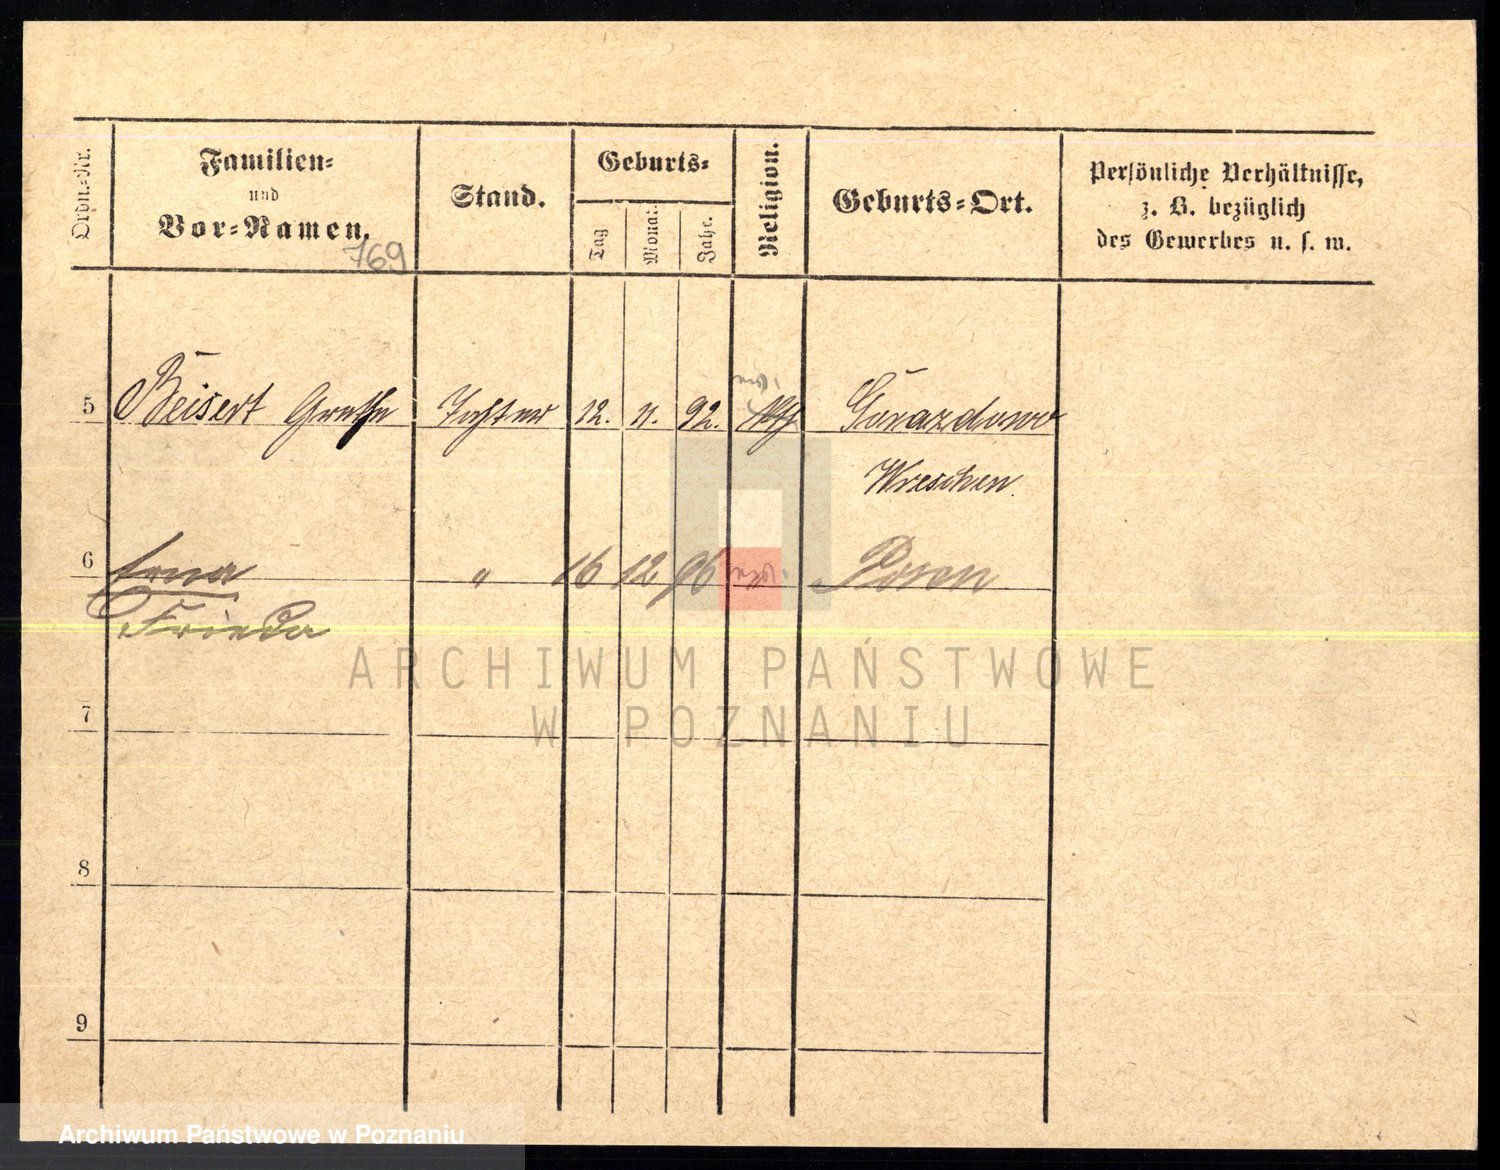 Ordn.-Nr.
Familien-
und
Vor-Namen.
769
Stand.
Geburts-
Tag
Monat.
Jahr.
Religion.
Geburts-Ort.
Persönliche Verhältnisse,
z. B. bezüglich
des Gewerbes u. s. w.
5 Beisert Grethe Tochter 12. 11. 92. Gurazdowo
Wreschen.
6 Erna " 16 12 96 Posen
Frieda
7
8
9
ARCHIWUM PAŃSTWOWE
W POZNANIU
Archiwum Państwowe w Poznaniu